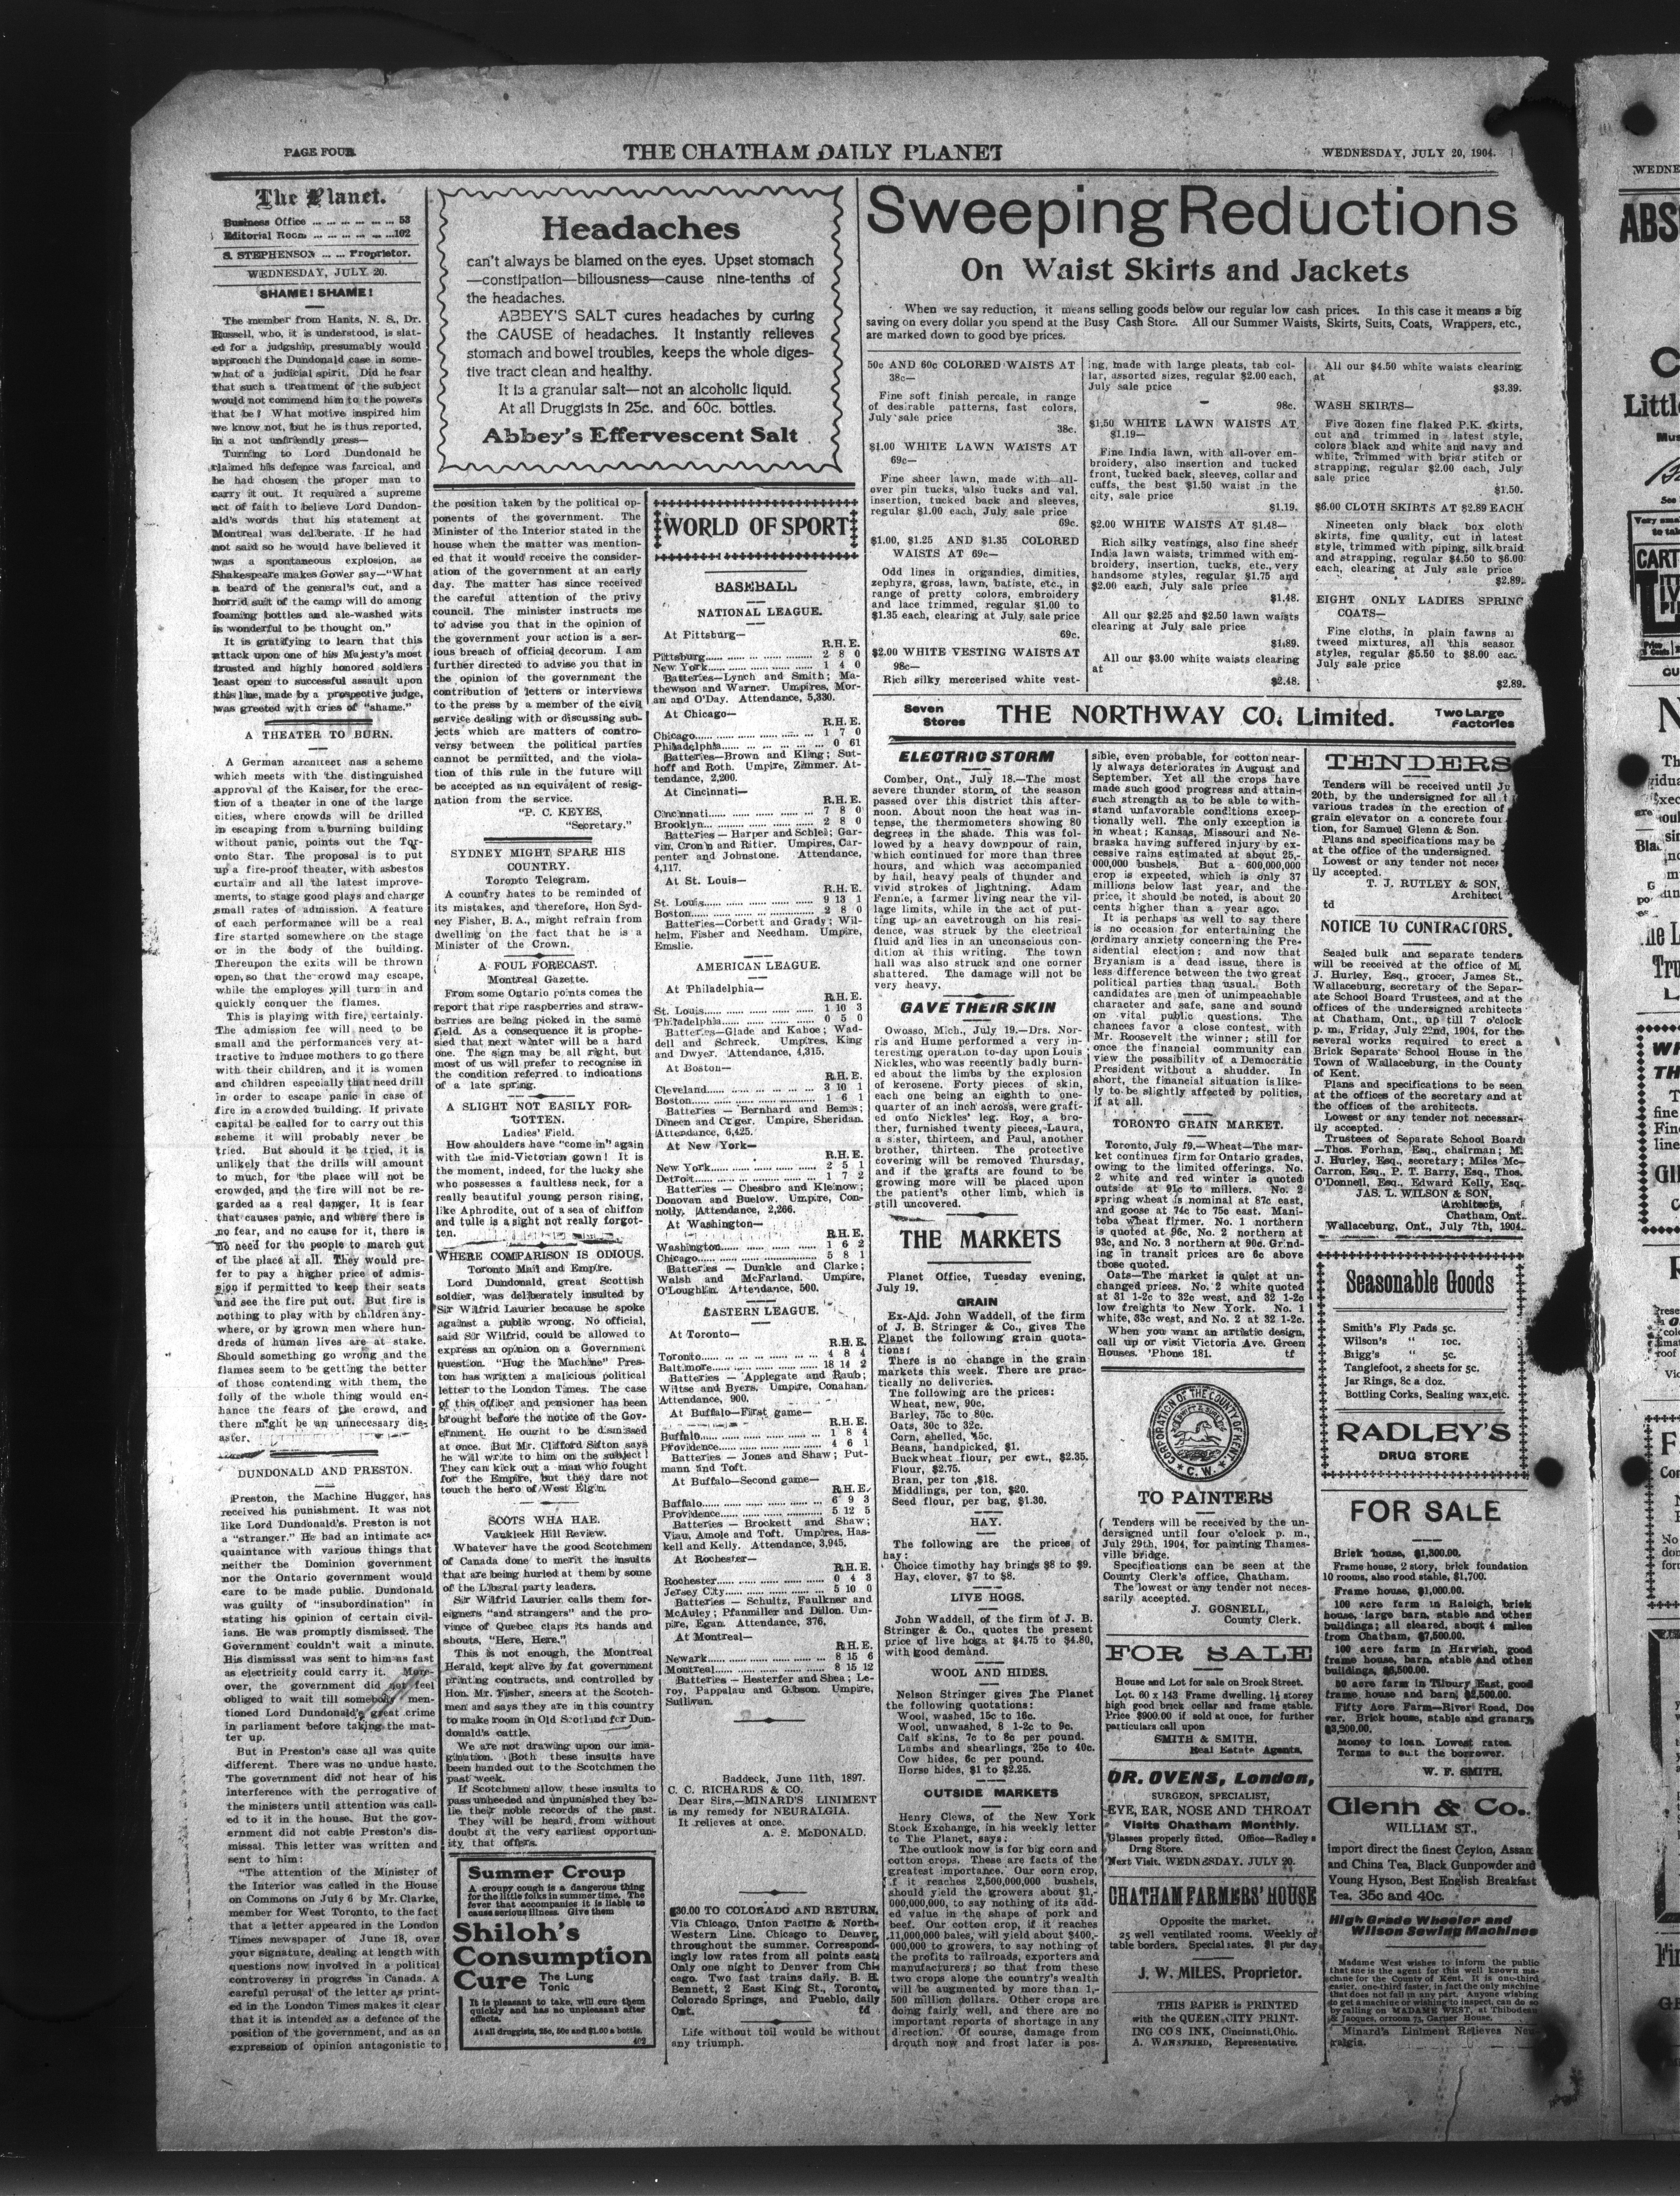 PAGE FOUR
THE CHATHAM DAILY PLANET
WEDNESDAY, JULY 20, 1904.
The Planet.
Business Office ... ... ... ... ... ... 53
Editorial Room ... ... ... ... ... ...102
S. STEPHENSON ... ... Proprietor.
WEDNESDAY, JULY 20.
SHAME! SHAME!
The member from Hants, N. S., Dr.
Russell, who, it is understood, is slat-
ed for a judgship, presumably would
approach the Dundonald case in some-
what of a judicial spirit. Did he fear
that such a treatment of the subject
would not commend him to the powers
that be? What motive inspired him
we know not, but he is thus reported,
in a not unfriendly press—
Turning to Lord Dundonald he
claimed his defence was farcical, and
he had chosen the proper man to
carry it out. It required a supreme
act of faith to believe Lord Dundon-
ald's words that his statement at
Montreal was deliberate. If he had
not said so he would have believed it
was a spontaneous explosion, as
Shakespeare makes Gower say—"What
a beard of the general's cut, and a
horrid suit of the camp will do among
foaming bottles and ale-washed wits
is wonderful to be thought on."
It is gratifying to learn that this
attack upon one of his Majesty's most
trusted and highly honored soldiers
least open to successful assault upon
this line, made by a prospective judge,
was greeted with cries of "shame."
A THEATER TO BURN.
A German architect has a scheme
which meets with the distinguished
approval of the Kaiser, for the erec-
tion of a theater in one of the large
cities, where crowds will be drilled
in escaping from a burning building
without panic, points out the Tor-
onto Star. The proposal is to put
up a fire-proof theater, with asbestos
curtain and all the latest improve-
ments, to stage good plays and charge
small rates of admission. A feature
of each performance will be a real
fire started somewhere on the stage
or in the body of the building.
Thereupon the exits will be thrown
open, so that the crowd may escape,
while the employes will turn in and
quickly conquer the flames.
This is playing with fire, certainly.
The admission fee will need to be
small and the performances very at-
tractive to induce mothers to go there
with their children, and it is women
and children especially that need drill
in order to escape panic in case of
fire in a crowded building. If private
capital be called for to carry out this
scheme it will probably never be
tried. But should it be tried, it is
unlikely that the drills will amount
to much, for the place will not be
crowded, and the fire will not be re-
garded as a real danger. It is fear
that causes panic, and where there is
no fear, and no cause for it, there is
no need for the people to march out
of the place at all. They would pre-
fer to pay a higher price of admis-
sion if permitted to keep their seats
and see the fire put out. But fire is
nothing to play with by children any-
where, or by grown men where hun-
dreds of human lives are at stake.
Should something go wrong and the
flames seem to be getting the better
of those contending with them, the
folly of the whole thing would en-
hance the fears of the crowd, and
there might be an unnecessary dis-
aster.
DUNDONALD AND PRESTON.
Preston, the Machine Hugger, has
received his punishment. It was not
like Lord Dundonald's. Preston is not
a "stranger." He had an intimate ac-
quaintance with various things that
neither the Dominion government
nor the Ontario government would
care to be made public. Dundonald
was guilty of "insubordination" in
stating his opinion of certain civil-
ians. He was promptly dismissed. The
Government couldn't wait a minute.
His dismissal was sent to him as fast
as electricity could carry it. More-
over, the government did not feel
obliged to wait till somebody men-
tioned Lord Dundonald's great crime
in parliament before taking the mat-
ter up.
But in Preston's case all was quite
different. There was no undue haste.
The government did not hear of his
interference with the perrogative of
the ministers until attention was call-
ed to it in the house. But the gov-
ernment did not cable Preston's dis-
missal. This letter was written and
sent to him:
"The attention of the Minister of
the Interior was called in the House
on Commons on July 6 by Mr. Clarke,
member for West Toronto, to the fact
that a letter appeared in the London
Times newspaper of June 18, over
your signature, dealing at length with
questions now involved in a political
controversy in progress in Canada. A
careful perusal of the letter as print-
ed in the London Times makes it clear
that it is intended as a defence of the
position of the government, and as an
expression of opinion antagonistic to
Headaches
can't always be blamed on the eyes. Upset stomach
—constipation—biliousness—cause nine-tenths of
the headaches.
ABBEY'S SALT cures headaches by curing
the CAUSE of headaches. It instantly relieves
stomach and bowel troubles, keeps the whole diges-
tive tract clean and healthy.
It is a granular salt—not an alcoholic liquid.
At all Druggists in 25c. and 60c. bottles.
Abbey's Effervescent Salt
the position taken by the political op-
ponents of the government. The
Minister of the Interior stated in the
house when the matter was mention-
ed that it would receive the consider-
ation of the government at an early
day. The matter has since received
the careful attention of the privy
council. The minister instructs me
to advise you that in the opinion of
the government your action is a ser-
ious breach of official decorum. I am
further directed to advise you that in
the opinion of the government the
contribution of letters or interviews
to the press by a member of the civil
service dealing with or discussing sub-
jects which are matters of contro-
versy between the political parties
cannot be permitted, and the viola-
tion of this rule in the future will
be accepted as an equivalent of resig-
nation from the service.
"P. C. KEYES,
"Secretary."
SYDNEY MIGHT SPARE HIS
COUNTRY.
Toronto Telegram.
A country hates to be reminded of
its mistakes, and therefore, Hon Syd-
ney Fisher, B. A., might refrain from
dwelling on the fact that he is a
Minister of the Crown.
A FOUL FORECAST.
Montreal Gazette.
From some Ontario points comes the
report that ripe raspberries and straw-
berries are being picked in the same
field. As a consequence it is prophe-
sied that next winter will be a hard
one. The sign may be all right, but
most of us will prefer to recognise in
the condition referred to indications
of a late spring.
A SLIGHT NOT EASILY FOR-
GOTTEN.
Ladies' Field.
How shoulders have "come in" again
with the mid-Victorian gown! It is
the moment, indeed, for the lucky she
who possesses a faultless neck, for a
really beautiful young person rising,
like Aphrodite, out of a sea of chiffon
and tulle is a sight not really forgot-
ten.
WHERE COMPARISON IS ODIOUS.
Toronto Mail and Empire.
Lord Dundonald, great Scottish
soldier, was deliberately insulted by
Sir Wilfrid Laurier because he spoke
against a public wrong. No official,
said Sir Wilfrid, could be allowed to
express an opinion on a Government
question. "Hug the Machine" Pres-
ton has written a malicious political
letter to the London Times. The case
of this officer and pensioner has been
brought before the notice of the Gov-
ernment. He ought to be dismissed
at once. But Mr. Clifford Sifton says
he will write to him on the subject!
They can kick out a man who fought
for the Empire, but they dare not
touch the hero of West Elgin.
SCOTS WHA HAE.
Vankleek Hill Review.
Whatever have the good Scotchmen
of Canada done to merit the insults
that are being hurled at them by some
of the Liberal party leaders.
Sir Wilfrid Laurier calls them for-
eigners "and strangers" and the pro-
vince of Quebec claps its hands and
shouts, "Here, Here."
This is not enough, the Montreal
Herald, kept alive by fat government
printing contracts, and controlled by
Hon. Mr. Fisher, sneers at the Scotch-
men and says they are in this country
to make room in Old Scotland for Dun-
donald's cattle.
We are not drawing upon our ima-
gination. Both these insults have
been handed out to the Scotchmen the
past week.
If Scotchmen allow these insults to
pass unheeded and unpunished they be-
lie their noble records of the past.
They will be heard from without
doubt at the very earliest opportun-
ity that offers.
Summer Croup
A croupy cough is a dangerous thing
for the little folks in summer time. The
fever that accompanies it is liable to
cause serious illness. Give them
Shiloh's
Consumption
Cure The Lung
Tonic
It is pleasant to take, will cure them
quickly and has no unpleasant after
effects.
At all druggists, 25c, 50c and $1.00 a bottle.
WORLD OF SPORT
BASEBALL
NATIONAL LEAGUE.
At Pittsburg—
R.H.E.
Pittsburg... ... ... ... ... 2 8 0
New York... ... ... ... ... 1 4 0
Batteries—Lynch and Smith; Ma-
thewson and Warner. Umpires, Mor-
an and O'Day. Attendance, 5,330.
At Chicago—
R.H.E.
Chicago... ... ... ... ... 1 7 0
Philadelphia... ... ... ... ... 0 61
Batteries—Brown and Kling; Sut-
hoff and Roth. Umpire, Zimmer. At-
tendance, 2,200.
At Cincinnati—
R.H.E.
Cincinnati... ... ... ... ... 7 8 0
Brooklyn... ... ... ... ... 2 8 0
Batteries — Harper and Schlei; Gar-
vin, Cronin and Ritter. Umpires, Car-
penter and Johnstone. Attendance,
4,117.
At St. Louis—
R.H.E.
St. Louis... ... ... ... ... 9 13 1
Boston... ... ... ... ... 2 8 0
Batteries—Corbett and Grady; Wil-
helm, Fisher and Needham. Umpire,
Emslie.
AMERICAN LEAGUE.
At Philadelphia—
R.H.E.
St. Louis... ... ... ... ... 1 10 3
Philadelphia... ... ... ... ... 0 5 0
Batteries—Glade and Kahoe; Wad-
dell and Schreck. Umpires, King
and Dwyer. Attendance, 4,315.
At Boston—
R.H.E.
Cleveland... ... ... ... ... 3 10 1
Boston... ... ... ... ... 1 6 1
Batteries — Bernhard and Bemis;
Dineen and Criger. Umpire, Sheridan.
Attendance, 6,425.
At New York—
R.H.E.
New York... ... ... ... ... 2 5 1
Detroit... ... ... ... ... 1 7 2
Batteries — Chesbro and Kleinow;
Donovan and Buelow. Umpire, Con-
nolly. Attendance, 2,266.
At Washington—
R.H.E.
Washington... ... ... ... ... 1 6 2
Chicago... ... ... ... ... 5 8 1
Batteries — Dunkle and Clarke;
Walsh and McFarland. Umpire,
O'Loughlin. Attendance, 500.
EASTERN LEAGUE.
At Toronto—
R.H.E.
Toronto... ... ... ... ... 4 8 4
Baltimore... ... ... ... ... 18 14 2
Batteries — Applegate and Raub;
Wiltse and Byers. Umpire, Conahan.
Attendance, 900.
At Buffalo—First game—
R.H.E.
Buffalo... ... ... ... ... 1 8 4
Providence... ... ... ... ... 4 6 1
Batteries — Jones and Shaw; Put-
mann and Toft.
At Buffalo—Second game—
R.H.E.
Buffalo... ... ... ... ... 6 9 3
Providence... ... ... ... ... 5 12 5
Batteries — Brockett and Shaw;
Viau, Amole and Toft. Umpires, Has-
kell and Kelly. Attendance, 3,945.
At Rochester—
R.H.E.
Rochester... ... ... ... ... 0 4 3
Jersey City... ... ... ... ... 5 10 0
Batteries — Schultz, Faulkner and
McAuley; Pfanmiller and Dillon. Um-
pire, Egan. Attendance, 376.
At Montreal—
R.H.E.
Newark... ... ... ... ... 8 15 6
Montreal... ... ... ... ... 8 15 12
Batteries — Hesterfer and Shea; Le-
roy, Pappalau and Gibson. Umpire,
Sullivan.
Baddeck, June 11th, 1897.
C. C. RICHARDS & CO.
Dear Sirs,—MINARD'S LINIMENT
is my remedy for NEURALGIA.
It relieves at once.
A. S. McDONALD.
$30.00 TO COLORADO AND RETURN.
Via Chicago, Union Pacific & North-
Western Line. Chicago to Denver,
throughout the summer. Correspond-
ingly low rates from all points east.
Only one night to Denver from Chi-
cago. Two fast trains daily. B. H.
Bennett, 2 East King St., Toronto,
Colorado Springs, and Pueblo, daily
Ont. td
Life without toil would be without
any triumph.
Sweeping Reductions
On Waist Skirts and Jackets
When we say reduction, it means selling goods below our regular low cash prices. In this case it means a big
saving on every dollar you spend at the Busy Cash Store. All our Summer Waists, Skirts, Suits, Coats, Wrappers, etc.,
are marked down to good bye prices.
50c AND 60c COLORED WAISTS AT
38c—
Fine soft finish percale, in range
of desirable patterns, fast colors,
July sale price
38c.
$1.00 WHITE LAWN WAISTS AT
69c—
Fine sheer lawn, made with all-
over pin tucks, also tucks and val.
insertion, tucked back and sleeves,
regular $1.00 each, July sale price
69c.
$1.00, $1.25 AND $1.35 COLORED
WAISTS AT 69c—
Odd lines in organdies, dimities,
zephyrs, grass, lawn, batiste, etc., in
range of pretty colors, embroidery
and lace trimmed, regular $1.00 to
$1.35 each, clearing at July sale price
69c.
$2.00 WHITE VESTING WAISTS AT
98c—
Rich silky mercerised white vest-
ing, made with large pleats, tab col-
lar, assorted sizes, regular $2.00 each,
July sale price
98c.
$1.50 WHITE LAWN WAISTS AT
$1.19—
Fine India lawn, with all-over em-
broidery, also insertion and tucked
front, tucked back, sleeves, collar and
cuffs, the best $1.50 waist in the
city, sale price
$1.19.
$2.00 WHITE WAISTS AT $1.48—
Rich silky vestings, also fine sheer
India lawn waists, trimmed with em-
broidery, insertion, tucks, etc., very
handsome styles, regular $1.75 and
$2.00 each, July sale price
$1.48.
All our $2.25 and $2.50 lawn waists
clearing at July sale price
$1.89.
All our $3.00 white waists clearing
at
$2.48.
All our $4.50 white waists clearing
at
$3.39.
WASH SKIRTS—
Five dozen fine flaked P.K. skirts,
cut and trimmed in latest style,
colors black and white and navy and
white, trimmed with briar stitch or
strapping, regular $2.00 each, July
sale price
$1.50.
$6.00 CLOTH SKIRTS AT $2.89 EACH
Nineteen only black box cloth
skirts, fine quality, cut in latest
style, trimmed with piping, silk braid
and strapping, regular $4.50 to $6.00
each, clearing at July sale price
$2.89.
EIGHT ONLY LADIES SPRING
COATS—
Fine cloths, in plain fawns
tweed mixtures, all this season
styles, regular $5.50 to $8.00
July sale price
$2.89.
Seven
Stores
THE NORTHWAY CO. Limited.
Two Large
Factories
ELECTRIC STORM
Comber, Ont., July 18.—The most
severe thunder storm of the season
passed over this district this after-
noon. About noon the heat was in-
tense, the thermometers showing 80
degrees in the shade. This was fol-
lowed by a heavy downpour of rain,
which continued for more than three
hours, and which was accompanied
by hail, heavy peals of thunder and
vivid strokes of lightning. Adam
Fennie, a farmer living near the vil-
lage limits, while in the act of put-
ting up an eavetrough on his resi-
dence, was struck by the electrical
fluid and lies in an unconscious con-
dition at this writing. The town
hall was also struck and one corner
shattered. The damage will not be
very heavy.
GAVE THEIR SKIN
Owosso, Mich., July 19.—Drs. Nor-
ris and Hume performed a very in-
teresting operation to-day upon Louis
Nickles, who was recently badly burn-
ed about the limbs by the explosion
of kerosene. Forty pieces of skin,
each one being an eighth to one-
quarter of an inch across, were graft-
ed onto Nickles' leg. Roy, a bro-
ther, furnished twenty pieces, Laura,
a sister, thirteen, and Paul, another
brother, thirteen. The protective
covering will be removed Thursday,
and if the grafts are found to be
growing more will be placed upon
the patient's other limb, which is
still uncovered.
THE MARKETS
Planet Office, Tuesday evening,
July 19.
GRAIN
Ex-Ald. John Waddell, of the firm
of J. B. Stringer & Co., gives The
Planet the following grain quota-
tions:
There is no change in the grain
markets this week. There are prac-
tically no deliveries.
The following are the prices:
Wheat, new, 90c.
Barley, 75c to 80c.
Oats, 30c to 32c.
Corn, shelled, 45c.
Beans, handpicked, $1.
Buckwheat flour, per cwt., $2.35.
Flour, $2.75.
Bran, per ton, $18.
Middlings, per ton, $20.
Seed flour, per bag, $1.30.
HAY.
The following are the prices of
hay:
Choice timothy hay brings $8 to $9.
Hay, clover, $7 to $8.
LIVE HOGS.
John Waddell, of the firm of J. B.
Stringer & Co., quotes the present
price of live hogs at $4.75 to $4.80,
with good demand.
WOOL AND HIDES.
Nelson Stringer gives The Planet
the following quotations:
Wool, washed, 15c to 16c.
Wool, unwashed, 8 1-2c to 9c.
Calf skins, 7c to 8c per pound.
Lambs and shearlings, 25c to 40c.
Cow hides, 6c per pound.
Horse hides, $1 to $2.25.
OUTSIDE MARKETS
Henry Clews, of the New York
Stock Exchange, in his weekly letter
to The Planet, says:
The outlook now is for big corn and
cotton crops. These are facts of the
greatest importance. Our corn crop,
if it reaches 2,500,000,000 bushels,
should yield the growers about $1,-
000,000,000, to say nothing of its add-
ed value in the shape of pork and
beef. Our cotton crop, if it reaches
11,000,000 bales, will yield about $400,-
000,000 to growers, to say nothing of
the profits to railroads, exporters and
manufacturers; so that from these
two crops alone the country's wealth
will be augmented by more than 1,-
500 million dollars. Other crops are
doing fairly well, and there are no
important reports of shortage in any
direction. Of course, damage from
drouth now and frost later is pos-
sible, even probable, for cotton near-
ly always deteriorates in August and
September. Yet all the crops have
made such good progress and attain-
such strength as to be able to with-
stand unfavorable conditions excep-
tionally well. The only exception is
in wheat; Kansas, Missouri and Ne-
braska having suffered injury by ex-
cessive rains estimated at about 25,-
000,000 bushels. But a 600,000,000
crop is expected, which is only 37
millions below last year, and the
price, it should be noted, is about 20
cents higher than a year ago.
It is perhaps as well to say there
is no occasion for entertaining the
ordinary anxiety concerning the Pre-
sidential election; and now that
Bryanism is a dead issue, there is
less difference between the two great
political parties than usual. Both
candidates are men of unimpeachable
character and safe, sane and sound
on vital public questions. The
chances favor a close contest, with
Mr. Roosevelt the winner; still for
once the financial community can
view the possibility of a Democratic
President without a shudder. In
short, the financial situation is like-
ly to be slightly affected by politics,
if at all.
TORONTO GRAIN MARKET.
Toronto, July 19.—Wheat—The mar-
ket continues firm for Ontario grades,
owing to the limited offerings. No.
2 white and red winter is quoted
outside at 91c to millers. No. 2
spring wheat is nominal at 87c east,
and goose at 74c to 75c east. Mani-
toba wheat firmer. No. 1 northern
is quoted at 96c, No. 2 northern at
93c, and No. 3 northern at 90c. Grind-
ing in transit prices are 6c above
those quoted.
Oats—The market is quiet at un-
changed prices. No. 2 white quoted
at 31 1-2c to 32c west, and 32 1-2c
low freights to New York. No. 1
white, 33c west, and No. 2 at 32 1-2c.
When you want an artistic design,
call up or visit Victoria Ave. Green
Houses. 'Phone 181. tf
CORPORATION OF THE COUNTY OF KENT
C. W.
TO PAINTERS
Tenders will be received by the un-
dersigned until four o'clock p. m.,
July 29th, 1904, for painting Thames-
ville bridge.
Specifications can be seen at the
County Clerk's office, Chatham.
The lowest or any tender not neces-
sarily accepted.
J. GOSNELL,
County Clerk.
FOR SALE
House and Lot for sale on Brock Street.
Lot. 60 x 143 Frame dwelling. 1½ storey
high good brick cellar and frame stable.
Price $900.00 if sold at once, for further
particulars call upon
SMITH & SMITH,
Real Estate Agents.
DR. OVENS, London,
SURGEON, SPECIALIST,
EYE, EAR, NOSE AND THROAT
Visits Chatham Monthly.
Glasses properly fitted. Office—Radley's
Drug Store.
Next Visit. WEDNESDAY. JULY 20.
CHATHAM FARMERS' HOUSE
Opposite the market.
25 well ventilated rooms. Weekly of
table borders. Special rates. $1 per day
J. W. MILES, Proprietor.
THIS PAPER is PRINTED
with the QUEEN CITY PRINT-
ING CO'S INK, Cincinnati, Ohio.
A. WANSFRIED, Representative.
TENDERS
Tenders will be received until
20th, by the undersigned for all
various trades in the erection of
grain elevator on a concrete
tion, for Samuel Glenn & Son.
Plans and specifications may be
at the office of the undersigned.
Lowest or any tender not
ily accepted.
T. J. RUTLEY & SON,
Architect
td
NOTICE TO CONTRACTORS.
Sealed bulk and separate tenders
will be received at the office of M.
J. Hurley, Esq., grocer, James St.,
Wallaceburg, secretary of the Separ-
ate School Board Trustees, and at the
offices of the undersigned architects
at Chatham, Ont., up till 7 o'clock
p. m., Friday, July 22nd, 1904, for the
several works required to erect a
Brick Separate School House in the
Town of Wallaceburg, in the County
of Kent.
Plans and specifications to be seen
at the offices of the secretary and at
the offices of the architects.
Lowest or any tender not necessar-
ily accepted.
Trustees of Separate School Board
—Thos. Forhan, Esq., chairman; M.
J. Hurley, Esq., secretary; Miles Mc-
Carron, Esq., P. T. Barry, Esq., Thos.
O'Donnell, Esq., Edward Kelly, Esq.
JAS. L. WILSON & SON,
Architects,
Chatham, Ont.
Wallaceburg, Ont., July 7th, 1904.
Seasonable Goods
Smith's Fly Pads 5c.
Wilson's " 10c.
Brigg's " 5c.
Tanglefoot, 2 sheets for 5c.
Jar Rings, 8c a doz.
Bottling Corks, Sealing wax, etc.
RADLEY'S
DRUG STORE
FOR SALE
Brick house, $1,300.00.
Frame house, 2 story, brick foundation
10 rooms, also good stable, $1,700.
Frame house, $1,000.00.
100 acre farm in Raleigh, brick
house, large barn, stable and other
buildings; all cleared, about 4 miles
from Chatham, $7,500.00.
100 acre farm in Harwich, good
frame house, barn, stable and other
buildings, $6,500.00.
50 acre farm in Tilbury East, good
frame house and barn, $2,500.00.
Fifty Acre Farm—River Road, Do-
ver. Brick house, stable and granary,
$3,200.00.
Money to loan. Lowest rates.
Terms to suit the borrower.
W. F. SMITH.
Glenn & Co.
WILLIAM ST.,
import direct the finest Ceylon, Assan
and China Tea, Black Gunpowder and
Young Hyson, Best English Breakfast
Tea. 35c and 40c.
High Grade Wheeler and
Wilson Sewing Machines
Madame West wishes to inform the public
that she is the agent for this well known ma-
chine for the County of Kent. It is one-third
easier, one-third faster, in fact the only machine
that does not fail in any part. Anyone wishing
to get a machine or wishing to inspect, can do so
by calling on MADAME WEST, at Thibodeau
& Jacques, or room 73, Garner House.
Minard's Liniment Relieves Neu-
ralgia.